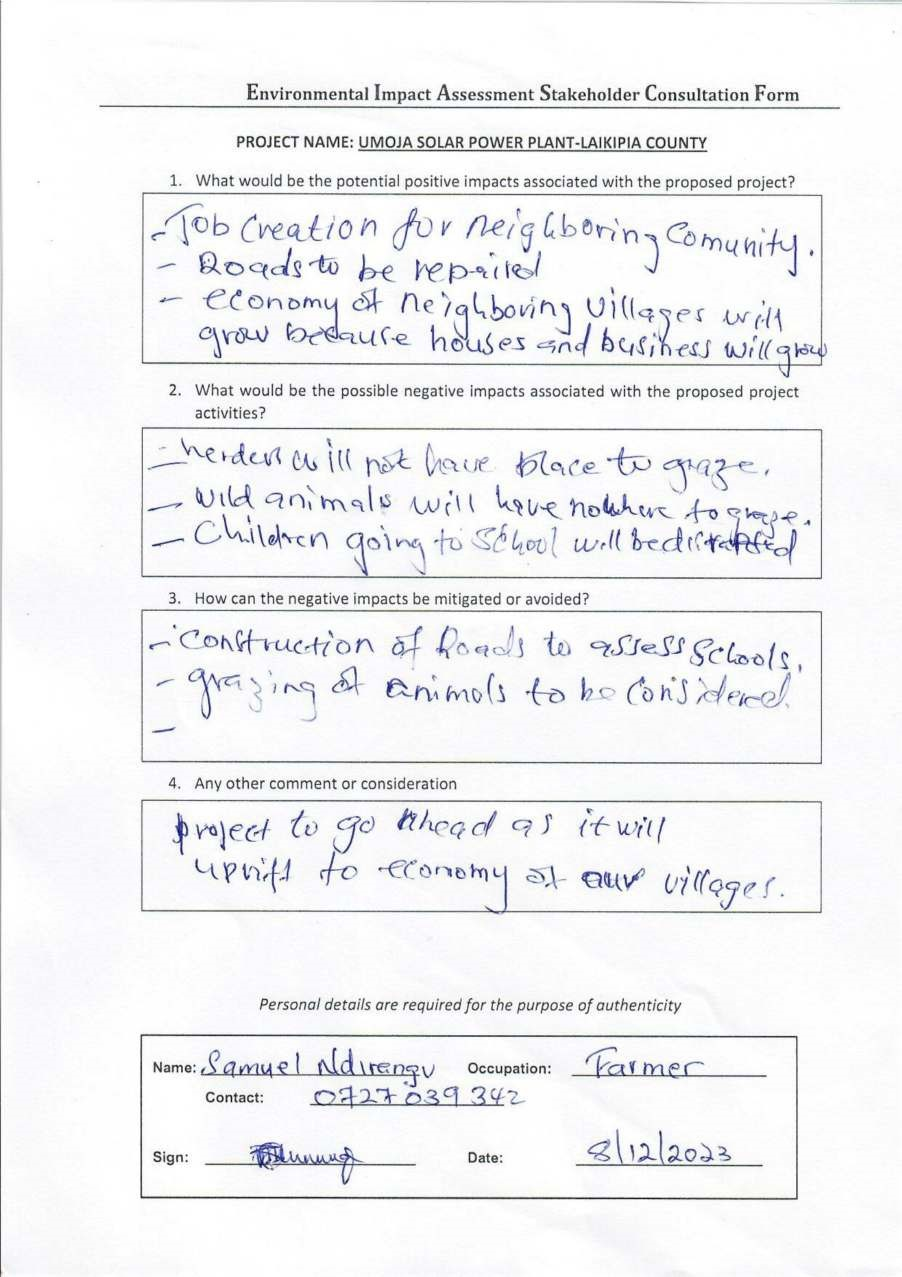 Environmental Impact Assessment Stakeholder Consultation Form
PROJECT NAME: UMOJA SOLAR POWER PLANT-LAIKIPIA COUNTY
1. What would be the potential positive impacts associated with the proposed project?
- Job Creation for neighboring Comunity.
- Roads to be repaired
- economy of neighboring Villages will
grow because houses and business will grow
2. What would be the possible negative impacts associated with the proposed project
activities?
- herders will not have place to graze.
- wild animals will have nowhere to graze.
- Children going to School will be
3. How can the negative impacts be mitigated or avoided?
- Construction of Roads to assess Schools.
- grazing of animals to be Considered.
-
4. Any other comment or consideration
project to go Ahead as it will
uprift to economy of our villages.
Personal details are required for the purpose of authenticity
Name: Samuel Ndirengu Occupation: Farmer
Contact: 0727 039 342
Sign: Date: 8/12/2023